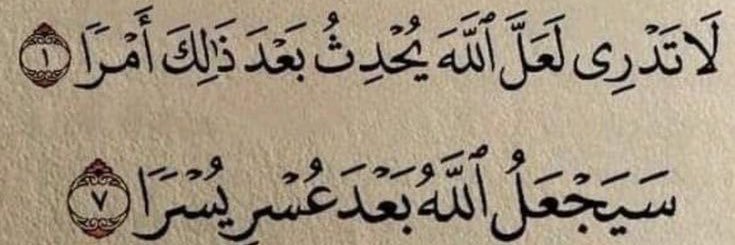 لَا تَدْرِى لَعَلَّ ٱللَّهَ يُحْدِثُ بَعْدَ ذَٰلِكَ أَمْرًا ١
سَيَجْعَلُ ٱللَّهُ بَعْدَ عُسْرٍ يُسْرًا ٧